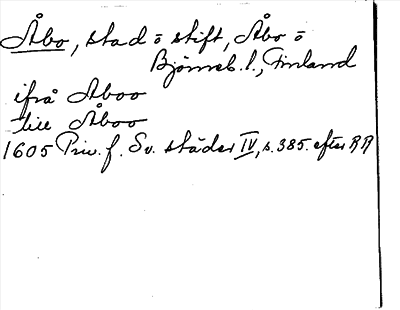 Åbo, stad o stift, Åbo o
Björneb. l., Finland
ifrå Aboo
till Åboo
1605 Priv. f. Sv. städer IV, s. 385. efter RR